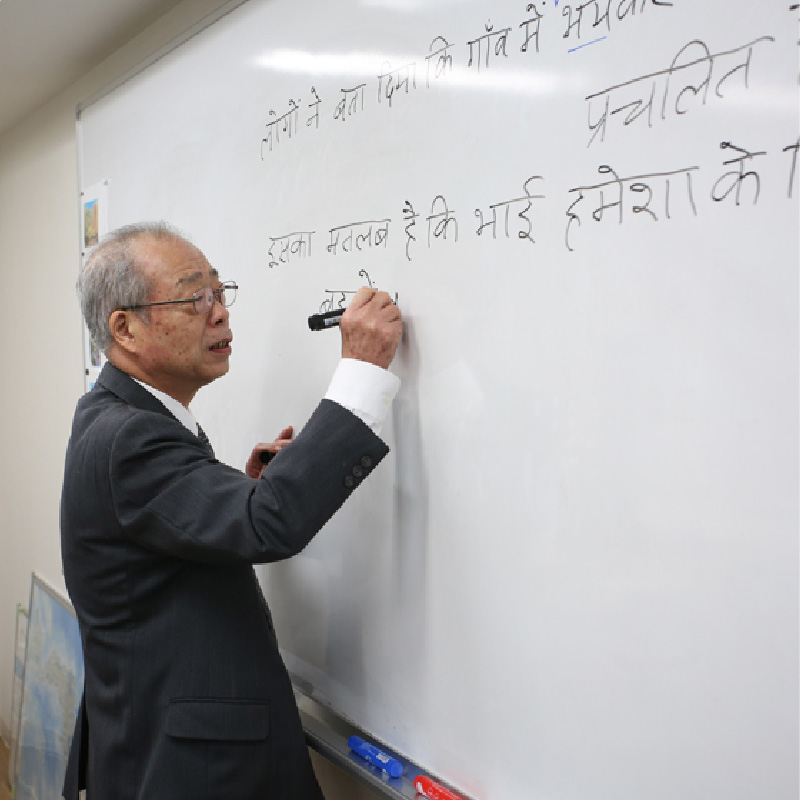 लोगों ने बता दिया कि गाँव में भयंकर
प्रचलित
इसका मतलब है कि भाई हमेशा के